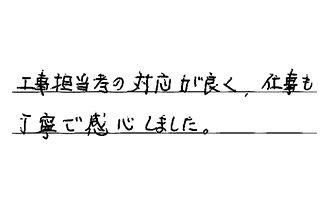 工事担当者の対応が良く、仕事も
丁寧で感心しました。